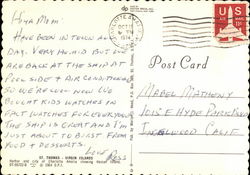 Hiya Mom
Have been in town all
day. Very humid but we
are back at the ship at
pool side + air conditioning
So we're cool now We
bought kids watches in
fact watches for everyone
The ship is great and I'm
just about to burst from
food + desserts.
Love Ross
ST. THOMAS - VIRGIN ISLANDS
Post Card
Mabel Matheny
Hyde Park
Inglewood Calif.